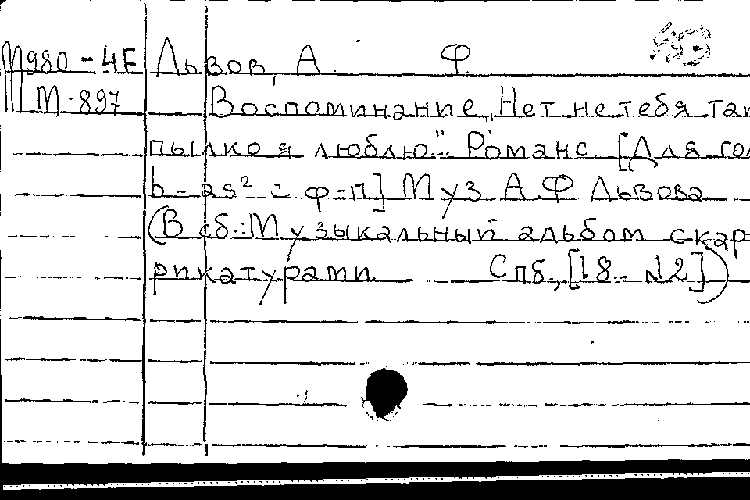 М980-4Е Львов, А. Ф.
III М-897 Воспоминание „Нет не тебя так
пылко я люблю". Романс [Для гол
b - as² с ф-п] Муз А.Ф Львова
(В сб.: Музыкальный альбом с кар
рикатурами. Спб., [18.. №2])